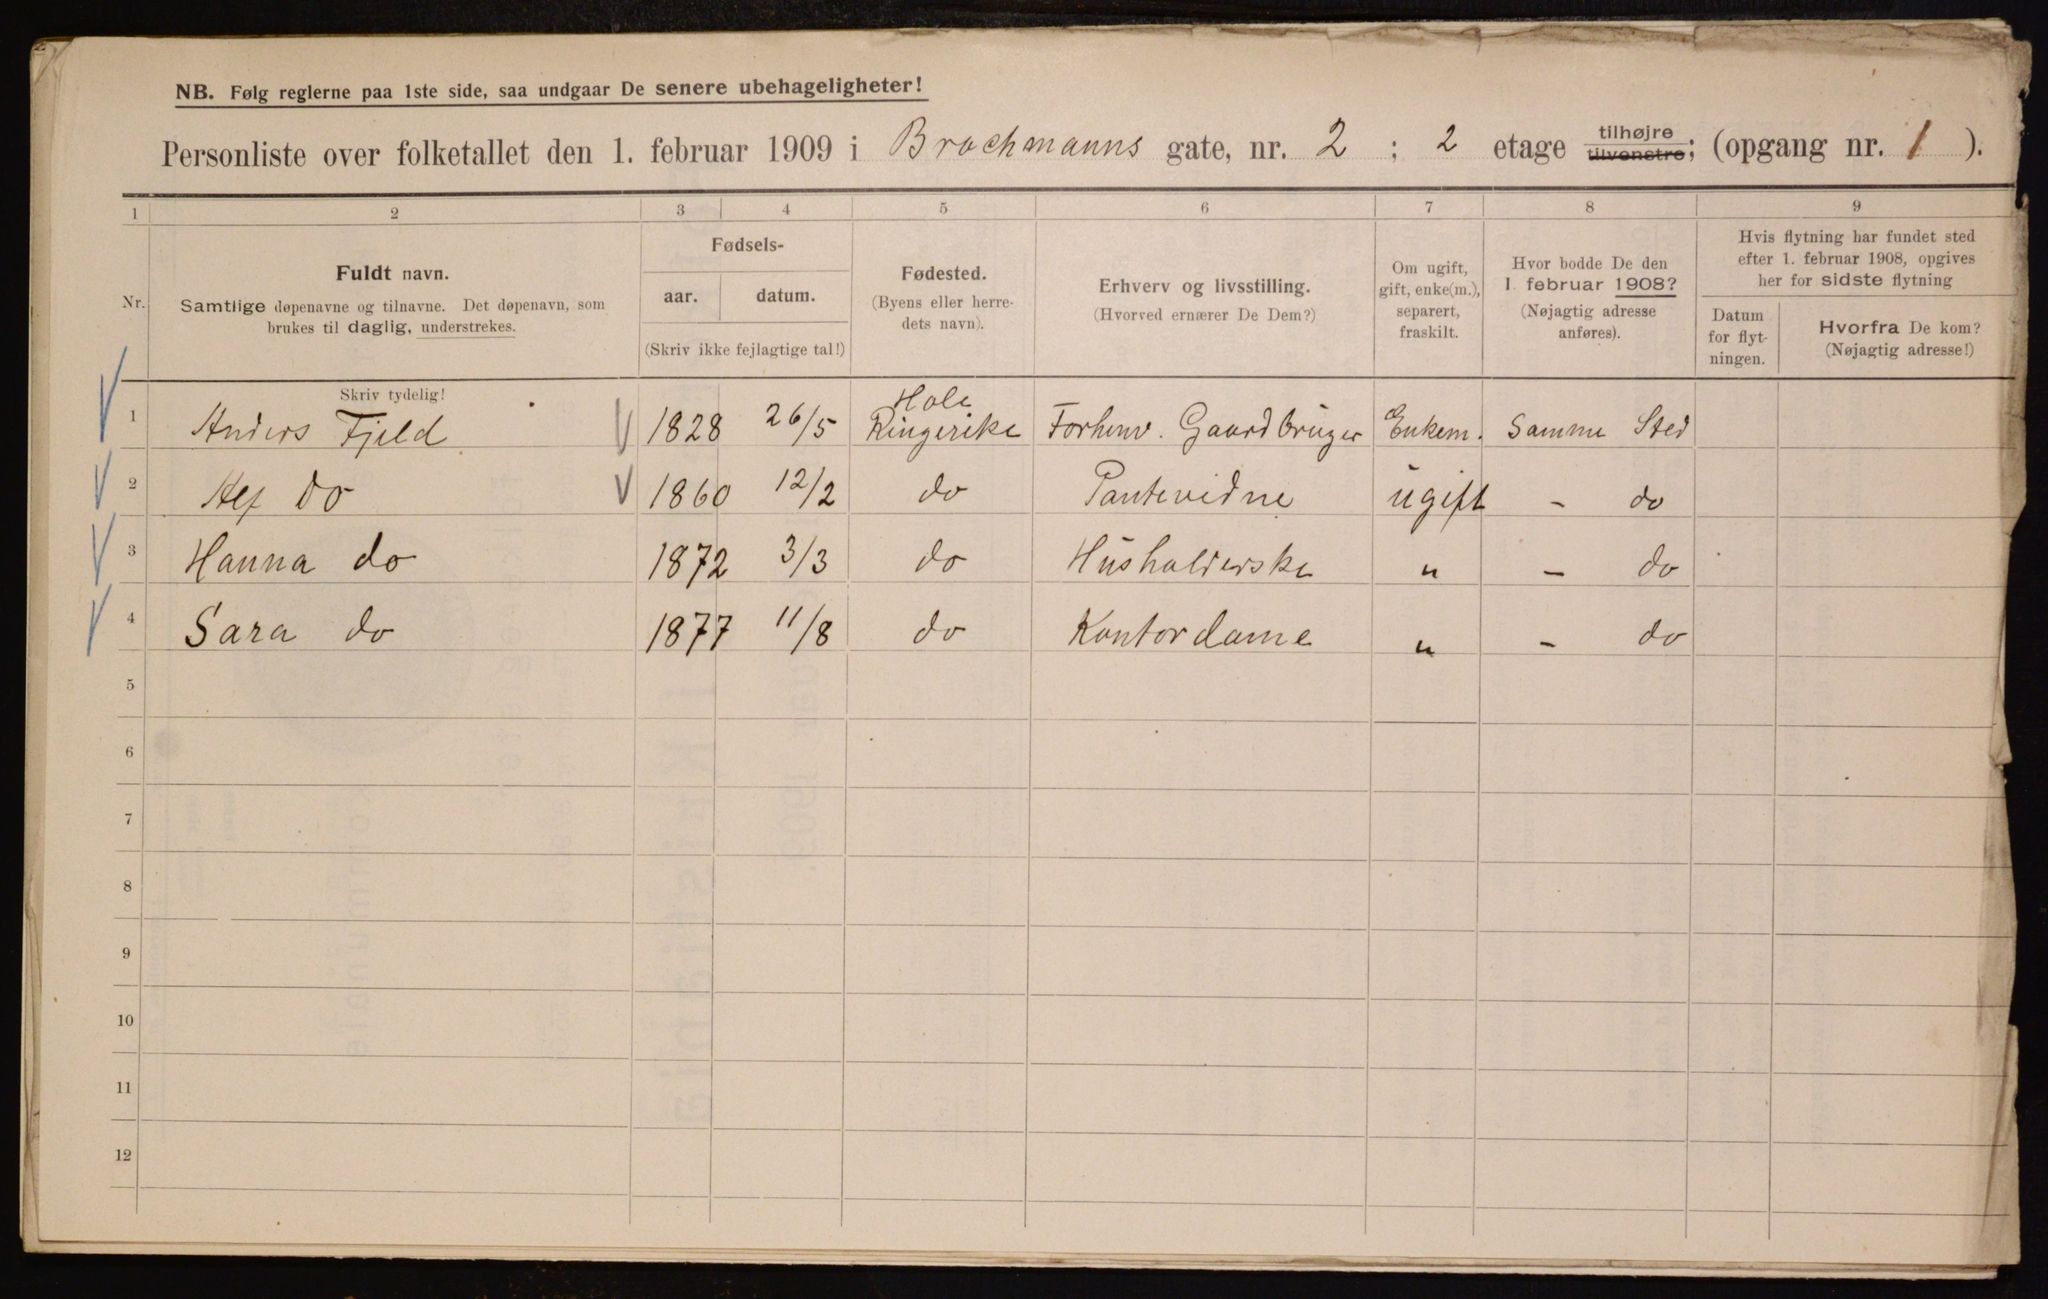 NB. Følg reglerne paa 1ste side, saa undgaar De senere ubehageligheter!
Personliste over folketallet den 1. februar 1909 i Brochmanns gate, nr. 2 ; 2 etage tilhøjre tilvenstre; (opgang nr. 1 ).
1 2 3 4 5 6 7 8 9
Nr.
Fuldt navn.
Samtlige døpenavne og tilnavne. Det døpenavn, som
brukes til daglig, understrekes.
Fødsels-
aar. datum.
(Skriv ikke fejlagtige tal!)
Fødested.
(Byens eller herre-
dets navn).
Erhverv og livsstilling.
(Hvorved ernærer De Dem?)
Om ugift,
gift, enke(m.),
separert,
fraskilt.
Hvor bodde De den
1. februar 1908?
(Nøjagtig adresse
anføres).
Hvis flytning har fundet sted
efter 1. februar 1908, opgives
her for sidste flytning
Datum
for flyt-
ningen.
Hvorfra De kom?
(Nøjagtig adresse!)
Skriv tydelig!
Hole
1 Anders Fjeld 1828 26/5 Ringerike Forhenv. Gaardbruger Enkem. Samme Sted
2 do 1860 12/2 do Pantevidne ugift - do
3 Hanna do 1872 3/3 do Husholderske " - do
4 Sara do 1877 11/8 do Kontordame " - do
5
6
7
8
9
10
11
12